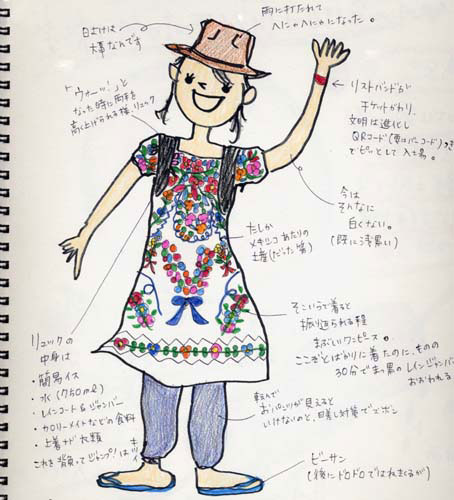 日よけは
大事なんです
雨に打たれて
へにゃへにゃになった。
「ウォーッ!」と
なった時に両手を
高く上げられる様、リュック
リストバンドが
チケットがわり。
文明は進化し
QRコード(要はバーコード)
でピッとして入場。
今は
そんなに
白くない。
(既にうす黒い)
たしか
メキシコあたりの
土着(だった筈)
そこいらで着ると
振り返られる程
まぶしいワンピース。
ここぎとばかりに着たのに、ものの
30分でまっ黒のレインジャンパー
おおわれる
リュックの
中身は
・簡易イス
・水(750ml)
・レインコート&ジャンパー
・カロリーメイトなどの食料
・上着など衣類
これを背負ってジャンプ!は
転んで
おパンツが見えると
いけないのと、日差し対策でズボン
ビーサン
(後にドロドロではれきくるが)